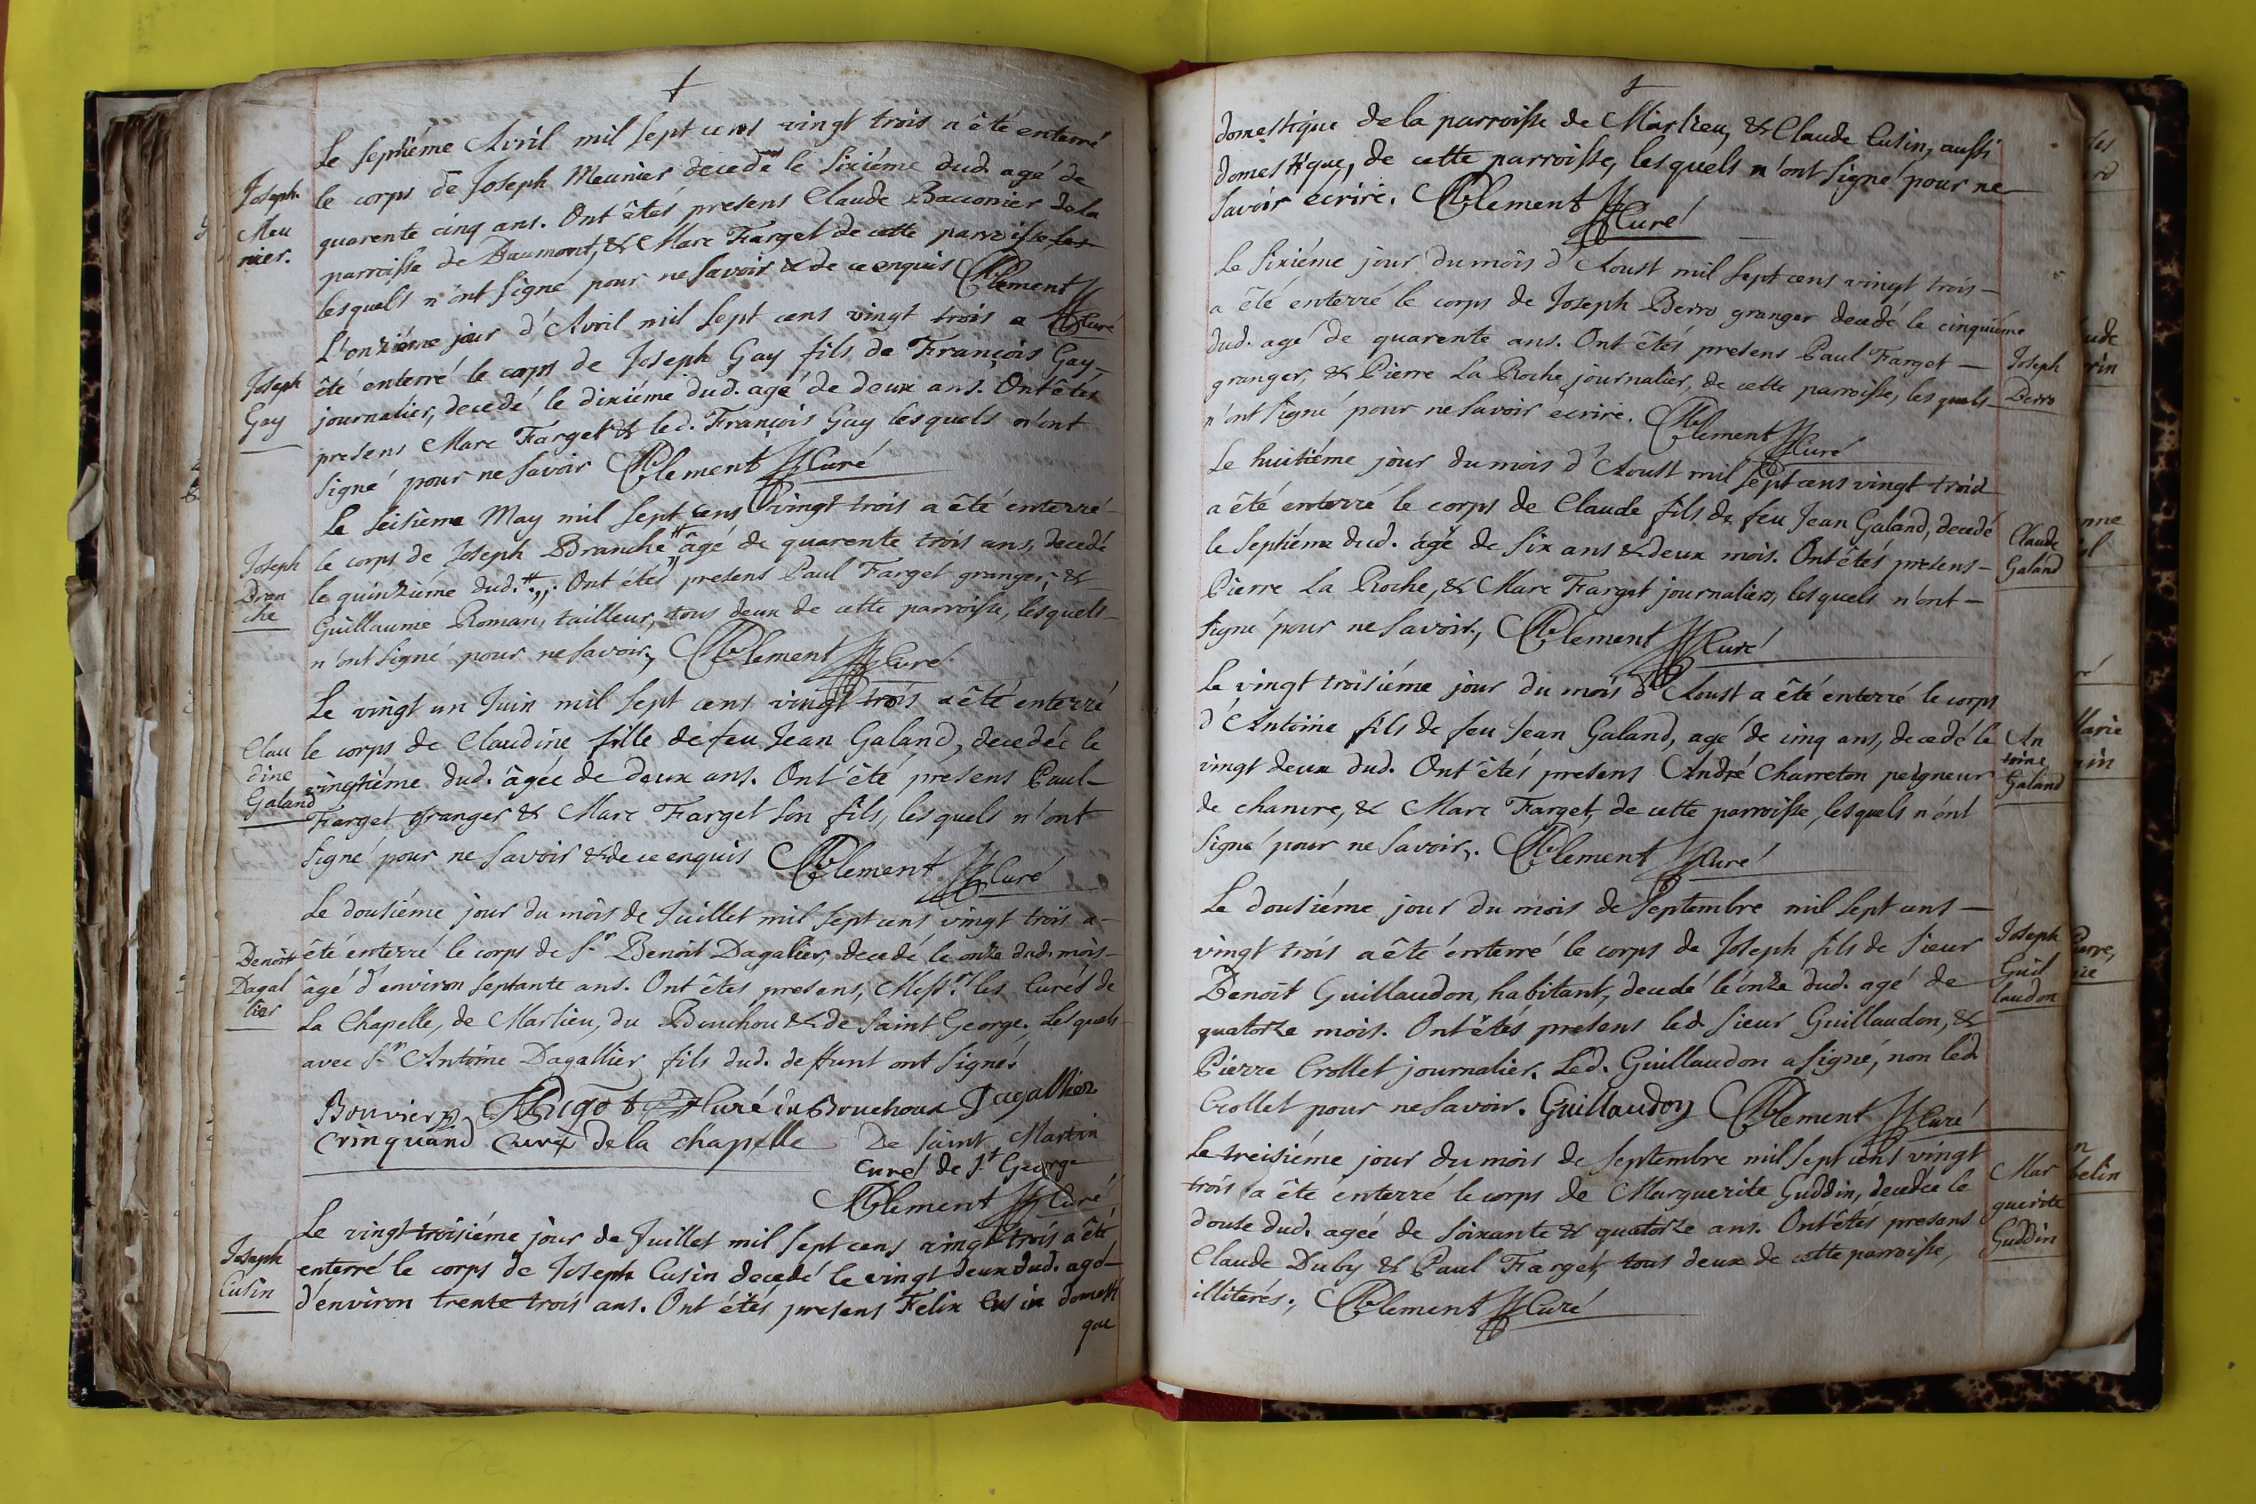 Le septiéme Avril mil sept cens vingt trois a êté enterré
Joseph
Meu
nier.
le corps de Joseph Meunier decedé le sixiéme dud. agé de
quarente cinq ans. Ont êtés presens Claude Bacconier de la
parroisse de Beaumont, & Marc Farget de cette parroisse les
lesquels n'ont signé pour ne savoir & de ce enquis Clement
Curé
L'onziéme jour d'Avril mil sept cens vingt trois a
Joseph
Gay
êté enterré le corps de Joseph Gay fils de François Gay
journalier, decedé le dixiéme dud. agé de deux ans. Ont êtés
presens Marc Farget & led. François Gay lesquels n'ont
signé pour ne savoir Clement Curé
Le seisieme May mil sept cens vingt trois a êté enterré
Joseph
Bran
che
le corps de Joseph Branche âgé de quarente trois ans, decedé
le quinziéme dud. Ont étés presens Paul Farget granger, &
Guillaume Roman, tailleur, tous deux de cette parroisse, lesquels
n'ont signé pour ne savoir, Clement Curé
Le vingt un Juin mil sept cens vingt trois a êté enterré
Clau
dine
Galand
le corps de Claudine fille de feu Jean Galand, decedée le
vingtiéme dud. âgée de deux ans. Ont été presens Paul
Farget granger & Marc Farget son fils, lesquels n'ont
signé pour ne savoir & de ce enquis Clement Curé
Le dousiéme jour du mois de Juillet mil sept cens vingt trois a
Benoît
Dagal
lier
êté enterré le corps de Sr. Benoît Dagalier, decedé le onze dud. mois
âgé d'environ septante ans. Ont êtes presens, Messrs. les Curés de
La Chapelle, de Marlieu, du Bouchou & de Saint George, Lesquels
avec Sr. Antoine Dagallier fils dud. deffunt ont signés
Bouvier Hugot Curé du Bouchoux Dagallier
Crinquand Curé de la chapelle De Saint Martin
curé de St George
Clement Curé
Le vingt troisiéme jour de Juillet mil sept cens vingt trois a êté
Joseph
Cusin
enterré le corps de Joseph Cusin decedé le vingt deux dud. agé
d'environ trente trois ans. Ont étés presens Felix Cusin domesti
que
domestique de la parroisse de Marlieu, & Claude Cusin, aussi
domestique, de cette parroisse, lesquels n'ont signé pour ne
savoir ecrire. Clement
Curé
Le sixiéme jour du mois d'Aoust mil sept cens vingt trois
a êté enterré le corps de Joseph Berro granger decedé le cinquiéme
dud. agé de quarente ans. Ont êtés presens Paul Farget
Joseph
Berro
granger, & Pierre La Roche journalier, de cette parroisse, lesquels
n'ont signé pour ne savoir ecrire. Clement Curé
Le huitiéme jour du mois d'Aoust mil sept cens vingt trois
a êté enterré le corps de Claude fils de feu Jean Galand, decedé
Claude
Galand
le septiéme dud. agé de six ans & deux mois. Ont êtés presens
Pierre La Roche, & Marc Farget journaliers, lesquels n'ont
signé pour ne savoir, Clement Curé
Le vingt troisiéme jour du mois d'Aoust a êté enterré le corps
d'Antoine fils de feu Jean Galand, agé de cinq ans, decedé le
An
toine
Galand
vingt deux dud. Ont êtés presens André Charreton peigneur
de chanvre, & Marc Farget, de cette parroisse, lesquels n'ont
signé pour ne savoir, Clement Curé
Le dousiéme jour du mois de Septembre mil sept cens
Joseph
Guil
laudon
vingt trois a êté enterré le corps de Joseph fils de sieur
Benoît Guillaudon, habitant, decedé le onze dud. agé de
quatorze mois. Ont êtés presens led. sieur Guillaudon, &
Pierre Crollet journalier. Led. Guillaudon a signé, non led.
Crollet pour ne savoir. Guillaudon Clement Curé
Le treisiéme jour du mois de Septembre mil sept cens vingt
Mar
guerite
Guddin
trois a êté enterré le corps de Marguerite Guddin, decedée le
douse dud. agée de soixante & quatorze ans. Ont étés presens
Claude Duby & Paul Farget, tous deux de cette parroisse,
illiterés, Clement Curé